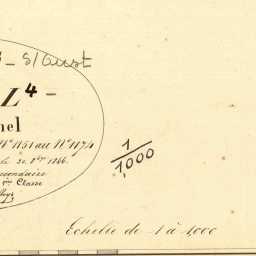 S/Aust
L 4
nel
N° 1151 au N° 1174
le 20. 8bre 1846.
Classe
1/1,000
Echelle de 1 à 1,000